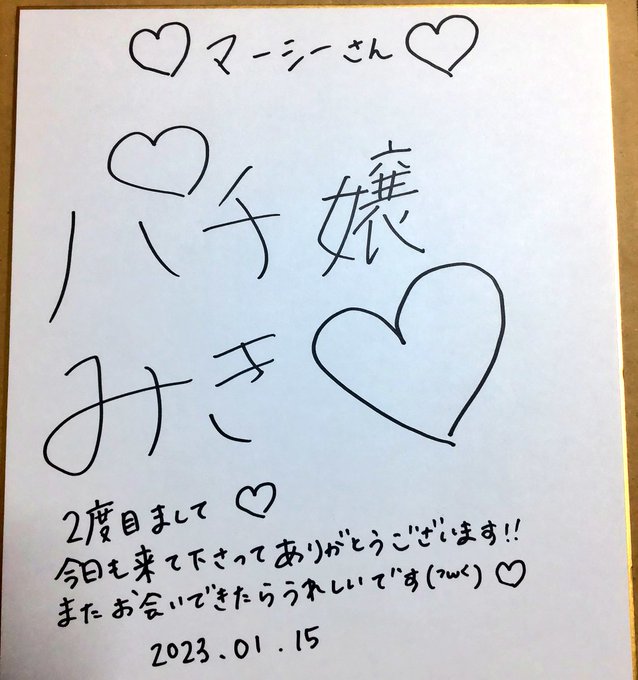 ♡マーシーさん♡
パチ嬢
みき♡
2度目まして♡
今日も来て下さってありがとうございます!!
またお会いできたらうれしいです(つω<)♡
2023.01.15